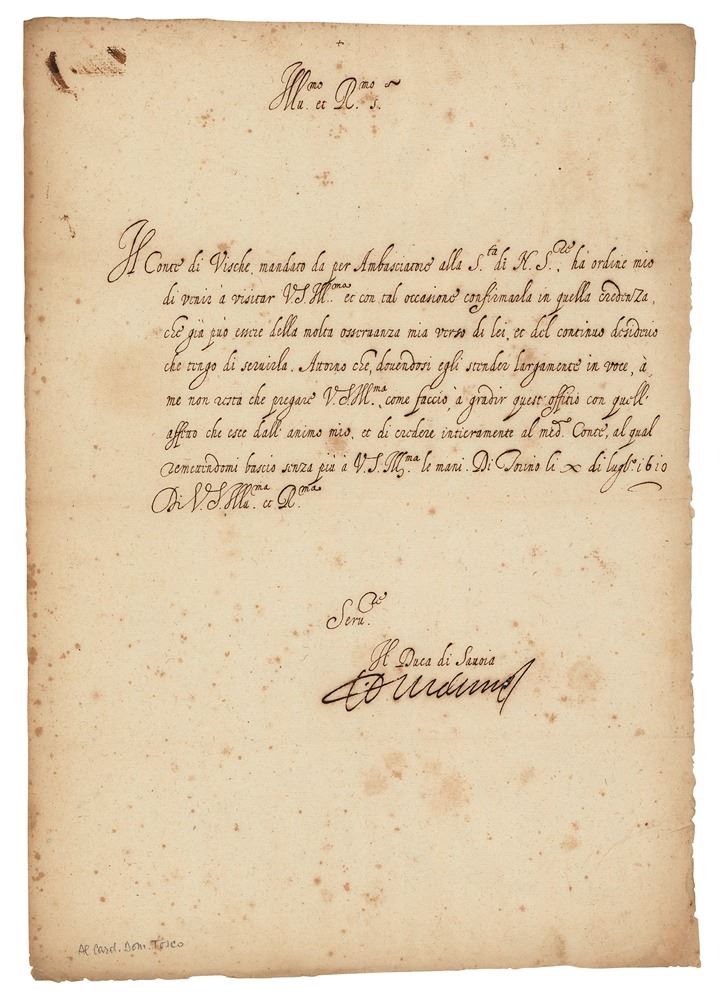 +
Ill.mo et R.mo S.r
Il Conte di Vische, mandato da me per Ambasciatore alla S.tà di N. S.re, hà ordine mio
di venir à visitar V. S. Ill.ma et con tal occasione confirmarla in quella credenza,
che già può essere della molta osseruanza mia verso di lei, et del continuo desiderio
che tengo di seruirla. Attorno che, douendosi egli stender largamente in voce, à
me non resta che pregare V. S. Ill.ma, come faccio, à gradir quest' offitio con quell'
affetto che esce dall' animo mio, et di credere intieramente al med.o Conte, al qual
remettendomi bascio senza più à V. S. Ill.ma le mani. Di Torino li x di lugl.o 1610
Di V. S. Ill.ma et R.ma
Seru.re
Il Duca di Sauoia
Al Card. Dom. Tosco